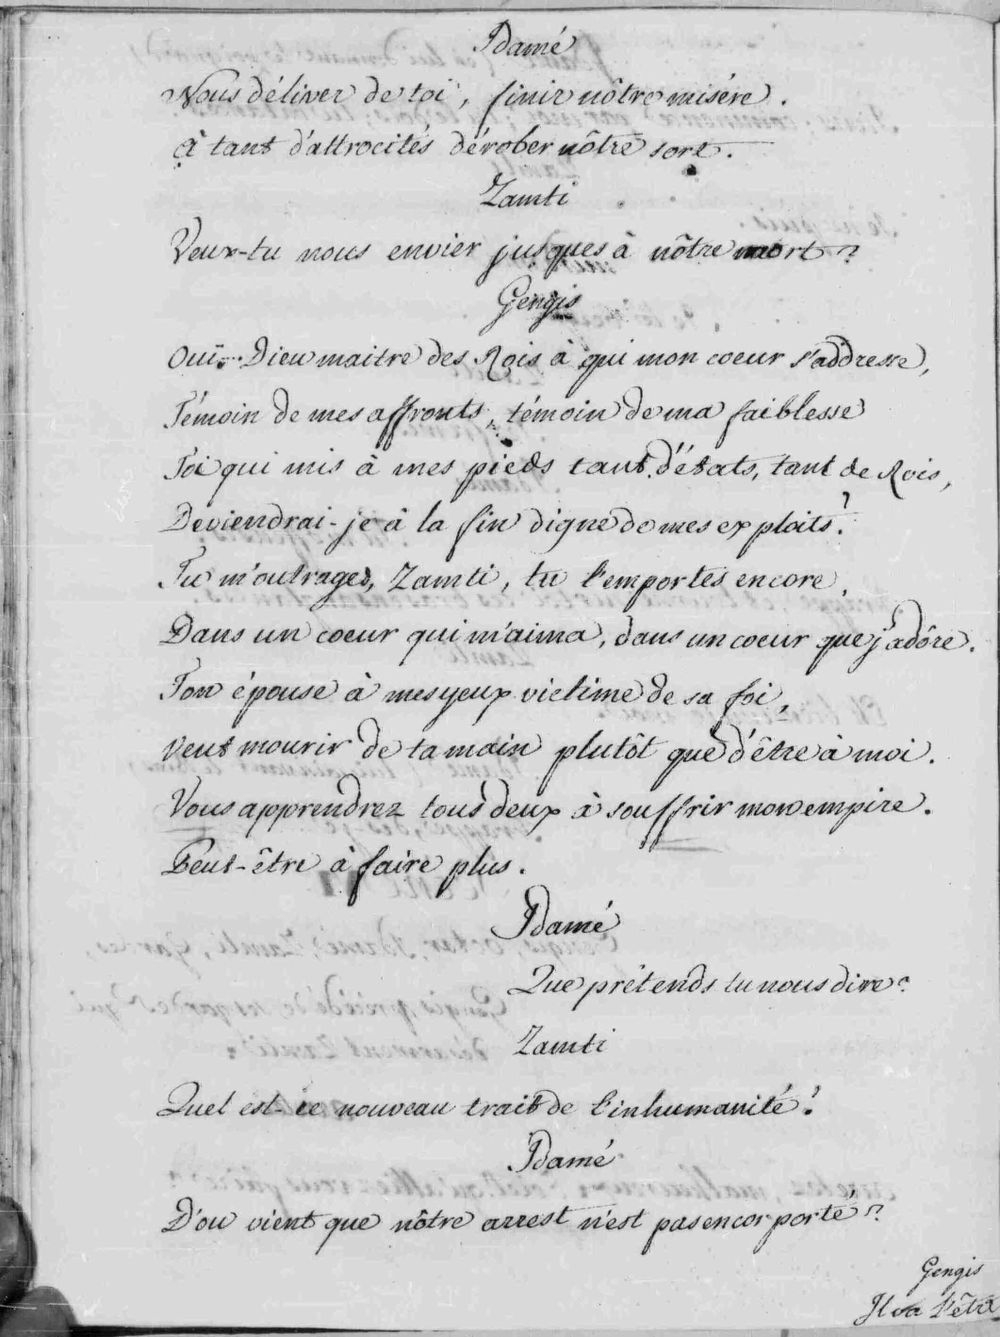 Idamé
Nous déliver de toi, finir nôtre misére.
à tant d'attrocités dérober nôtre sort.
Zamti
Veux-tu nous envier jusques à nôtre mort?
Gengis
Oui.. Dieu maitre des Rois à qui mon coeur s'addresse,
Témoin de mes affronts, témoin de ma faiblesse
Toi qui mis à mes pieds tant d'états, tant de Rois,
Deviendrai-je à la fin digne de mes exploits?
Tu m'outrages, Zamti, tu l'emportes encore,
Dans un coeur qui m'aima, dans un coeur que j'adôre.
Ton épouse à mes yeux victime de sa foi,
veut mourir de ta main plutôt que d'être à moi.
Vous apprendrez tous deux à souffrir mon empire.
Peut-être à faire plus.
Idamé
Que prétends tu nous dire?
Zamti
Quel est ce nouveau trait de l'inhumanité?
Idamé
D'ou vient que nôtre arrest n'est pas encor porté?
Gengis
Il va l'être